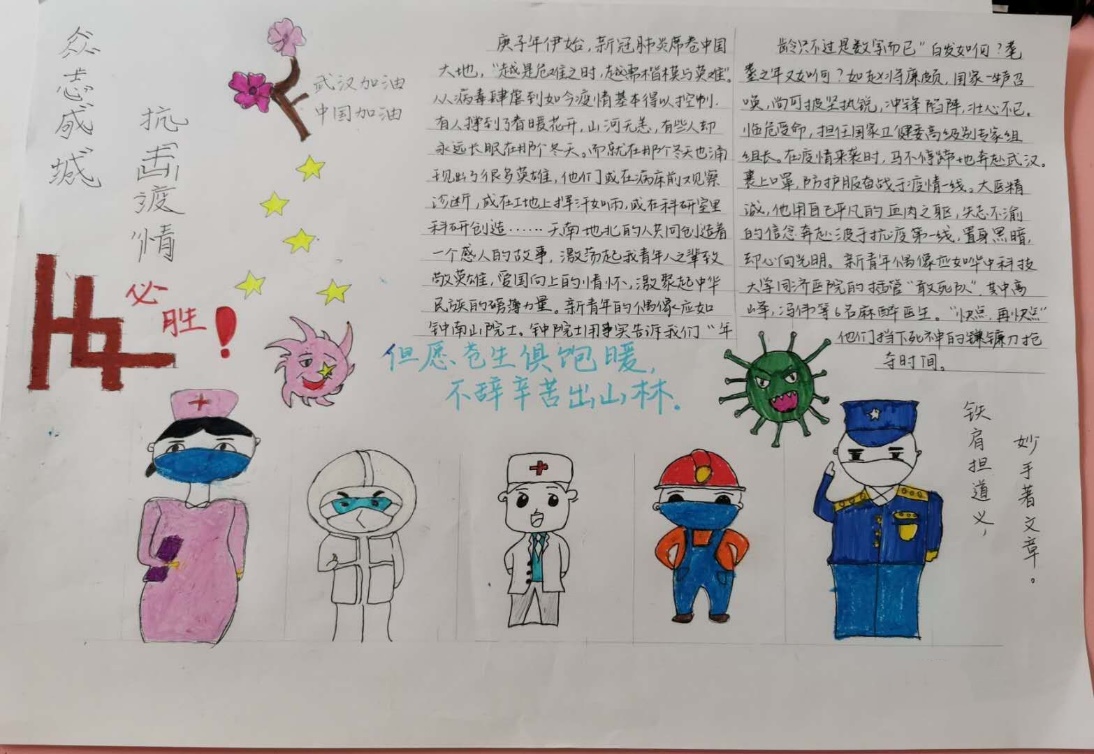 众志成城
抗击疫情
必
胜！
武汉加油
中国加油
庚子年伊始，新冠肺炎席卷中国
大地，“越是危难之时，越需楷模与英雄”。
从病毒肆虐到如今疫情基本得以控制，
有人撑到了春暖花开，山河无恙，有些人却
永远长眠在那个冬天。而就在那个冬天也涌
现出了很多英雄，他们或在病床前观察
诊断，或在工地上挥汗如雨，或在科研室里
科研创造……天南地北的人共同创造着
一个感人的故事，激荡起我青年人之辈致
敬英雄，爱国向上的情怀，激聚起中华
民族的磅礴力量。新青年的偶像应如
钟南山院士。钟院士用事实告诉我们“年
龄只不过是数字而已”白发如何？耄
耋之年又如何？如赵将廉颇，国家一声召
唤，尚可披坚执锐，冲锋陷阵，壮心不已。
临危受命，担任国家卫健委高级别专家组
组长。在疫情来袭时，马不停蹄地奔赴武汉。
裹上口罩，防护服奋战于疫情一线。大医精
诚，他用自己平凡的血肉之躯，矢志不渝
的信念奔赴波于抗疫第一线，置身黑暗，
却心向光明。新青年偶像应如华中科技
大学同济医院的插管“敢死队”，其中高
峰，冯伟等6名麻醉医生。“快点，再快点”
他们挡下死神的镰刀抢
夺时间。
但愿苍生俱饱暖，
不辞辛苦出山林．
铁肩担道义，
妙手著文章。